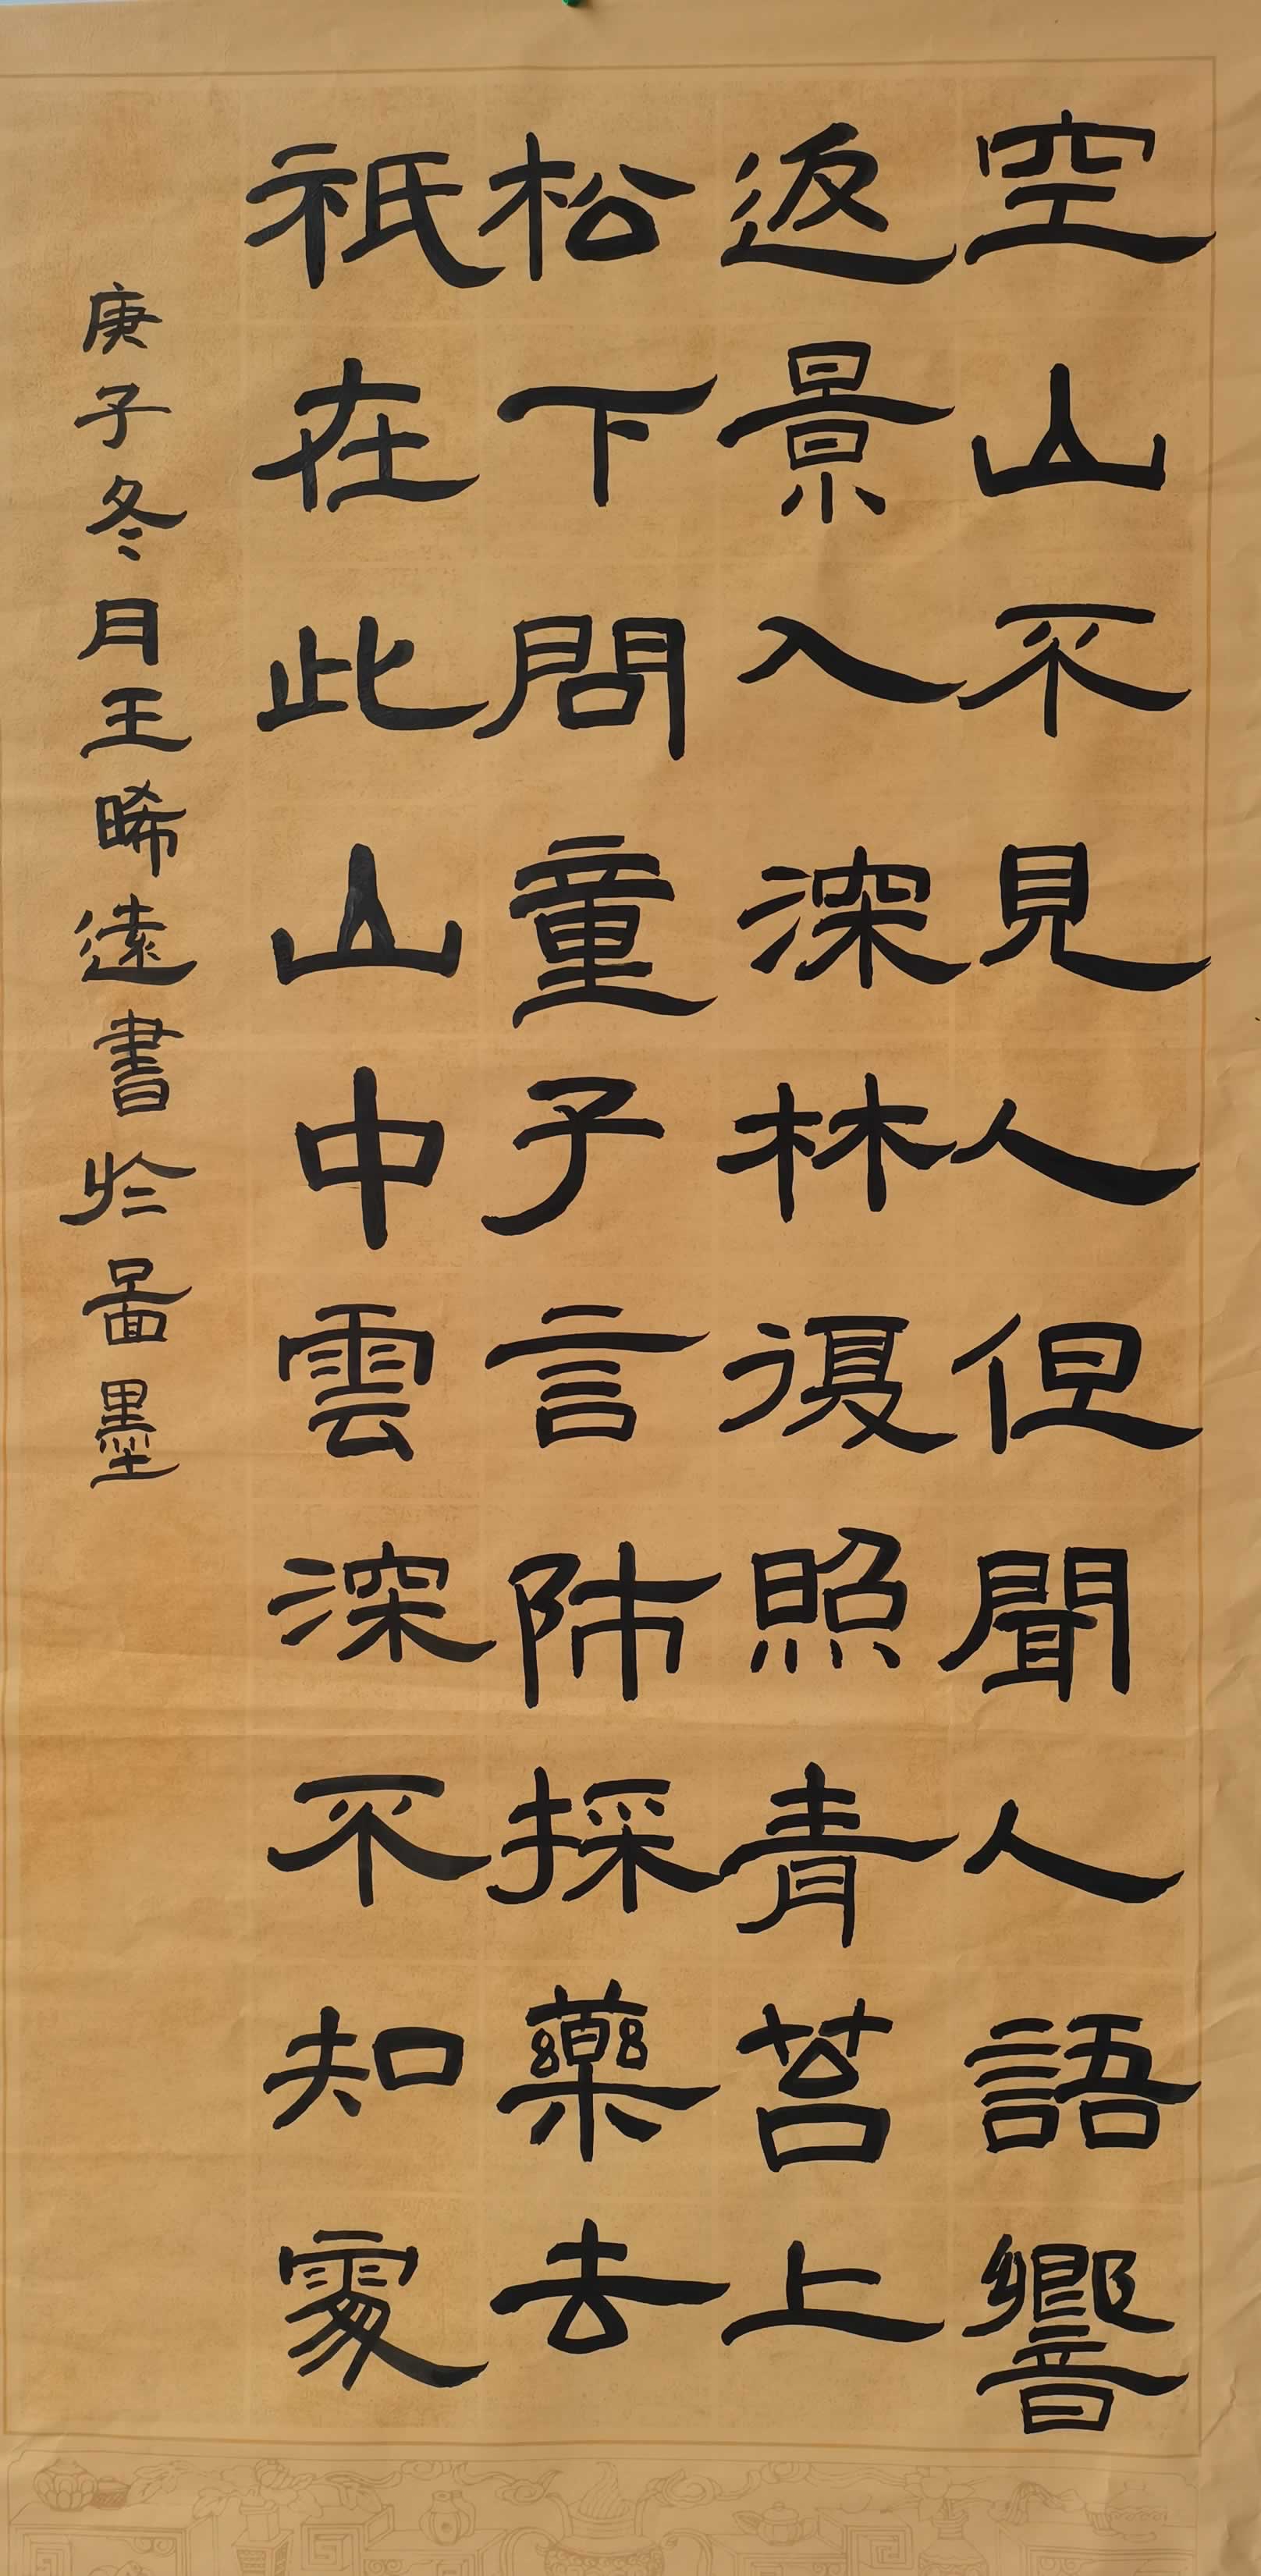 空山不見人但聞人語響
返景入深林復照青苔上
松下問童子言師採藥去
祇在此山中雲深不知處
庚子冬月王晞遠書於圖墨